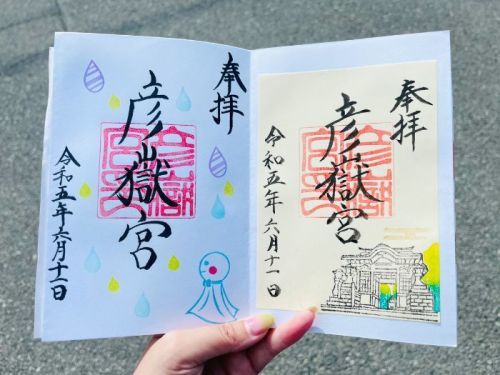 奉拝
彦嶽宮
令和五年六月十一日
奉拝
彦嶽宮
令和五年六月十一日